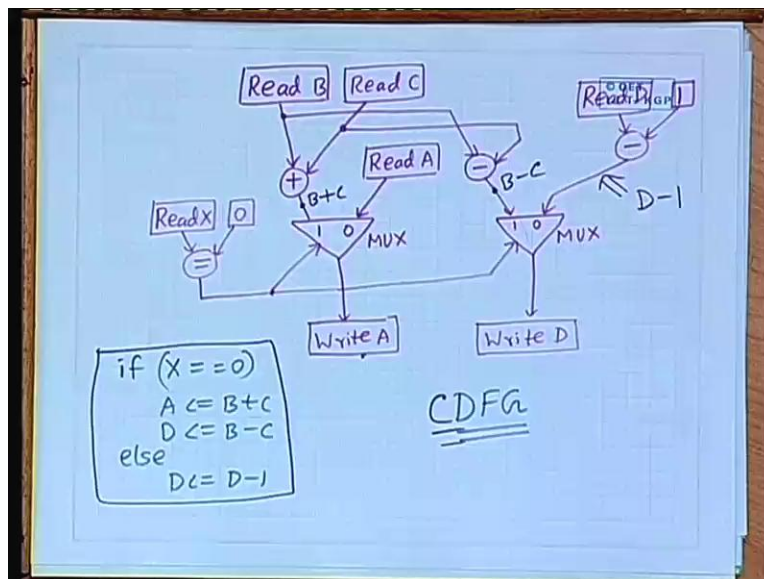 Read B
Read C
Read D
1
Read A
+
-
-
B+C
B-C
D-1
Read X
0
=
1 0
MUX
1 0
MUX
Write A
Write D
if (X = = 0)
A <= B+C
D <= B-C
else
D <= D-1
CDFG